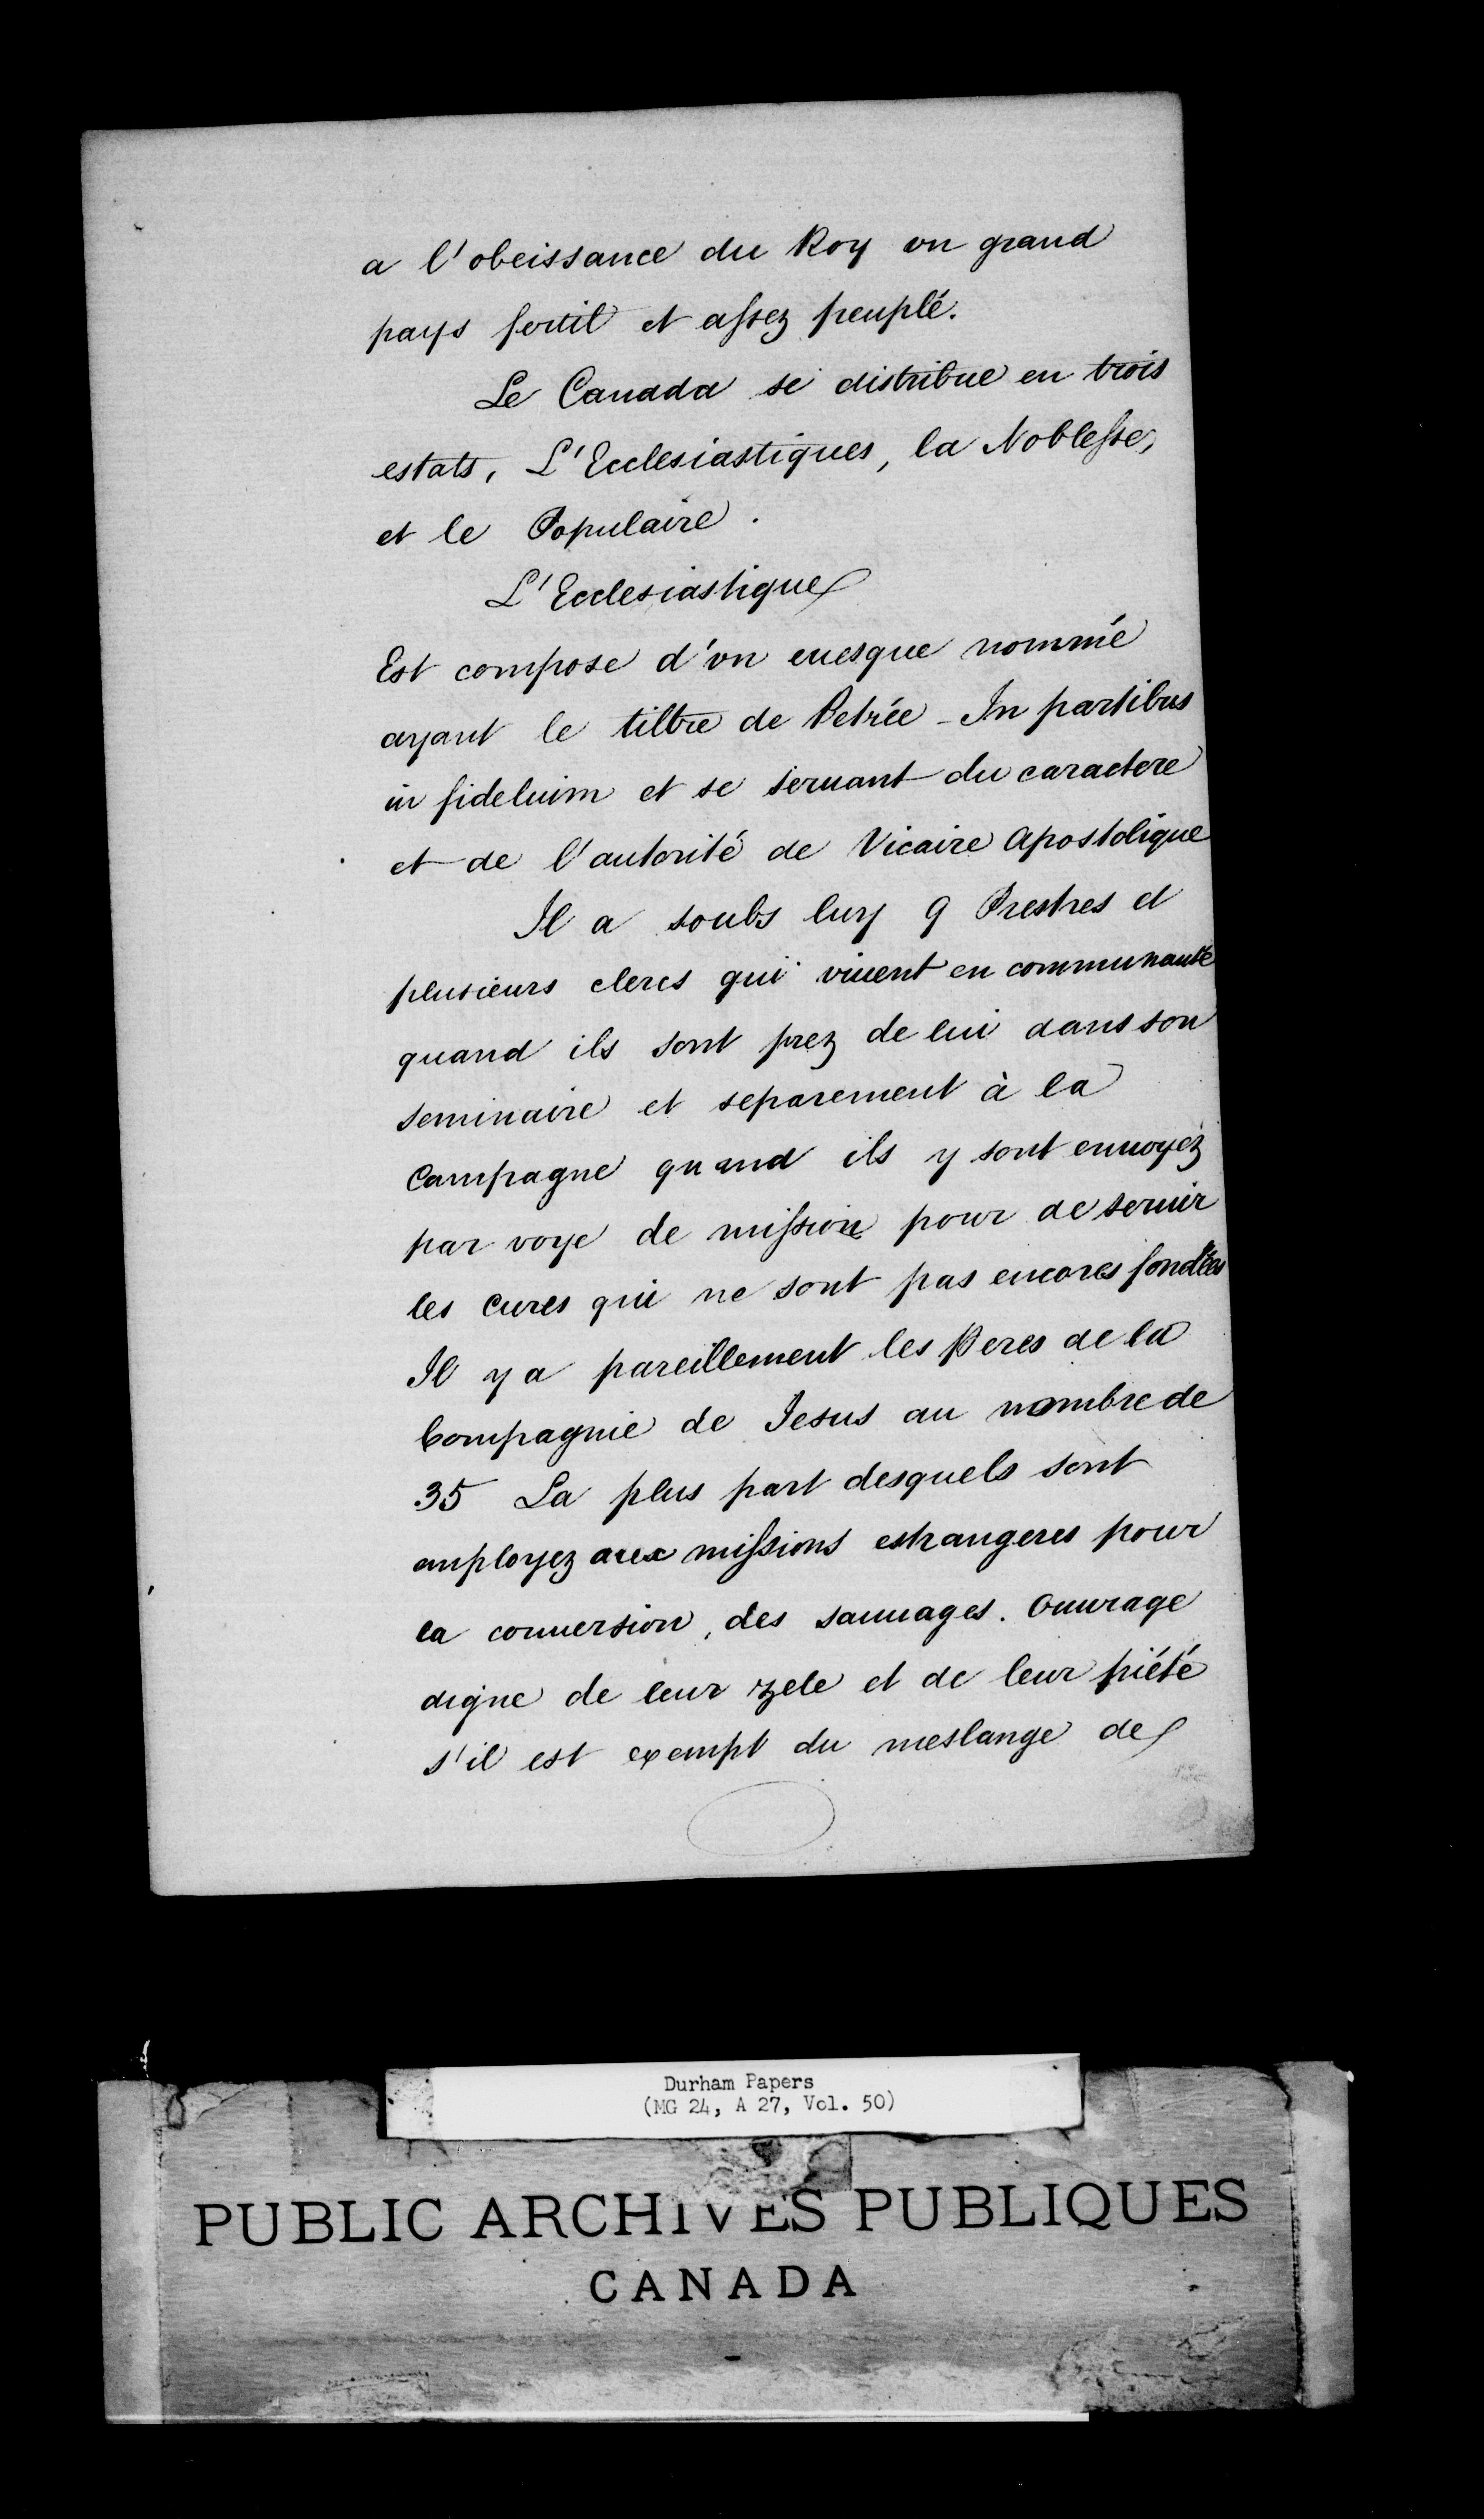 a l'obeissance du Roy un grand
pays fertil et assez peuplé.
Le Canada se distribue en trois
estats, L'Ecclesiastiques, la Noblesse,
et le Populaire.
L'Ecclesiastique
Est compose d'vn euesque nommé
ayant le tiltre de Petrée - In partibus
in fideluim et se seruant du caractere
et de l'autorité de Vicaire Apostolique
Il a soubs luy 9 Prestres et
plusieurs clercs qui viuent en communauté
quand ils sont prez de lui dans son
seminaire et separement à la
Campagne quand ils y sont enuoyéz
par voye de mission pour de seruir
les cures qui ne sont pas encores fondées
Il y a pareillement les Peres de la
Compagnie de Jesus au nombre de
35 La plus part desquels sont
employez aux missions estrangeres pour
la conuersion, des sauuages. Ouurage
digne de leur zele et de leur piété
s'il est exempt du meslange de
Durham Papers
(MG 24, A 27, Vol. 50)
PUBLIC ARCHIVES PUBLIQUES
CANADA